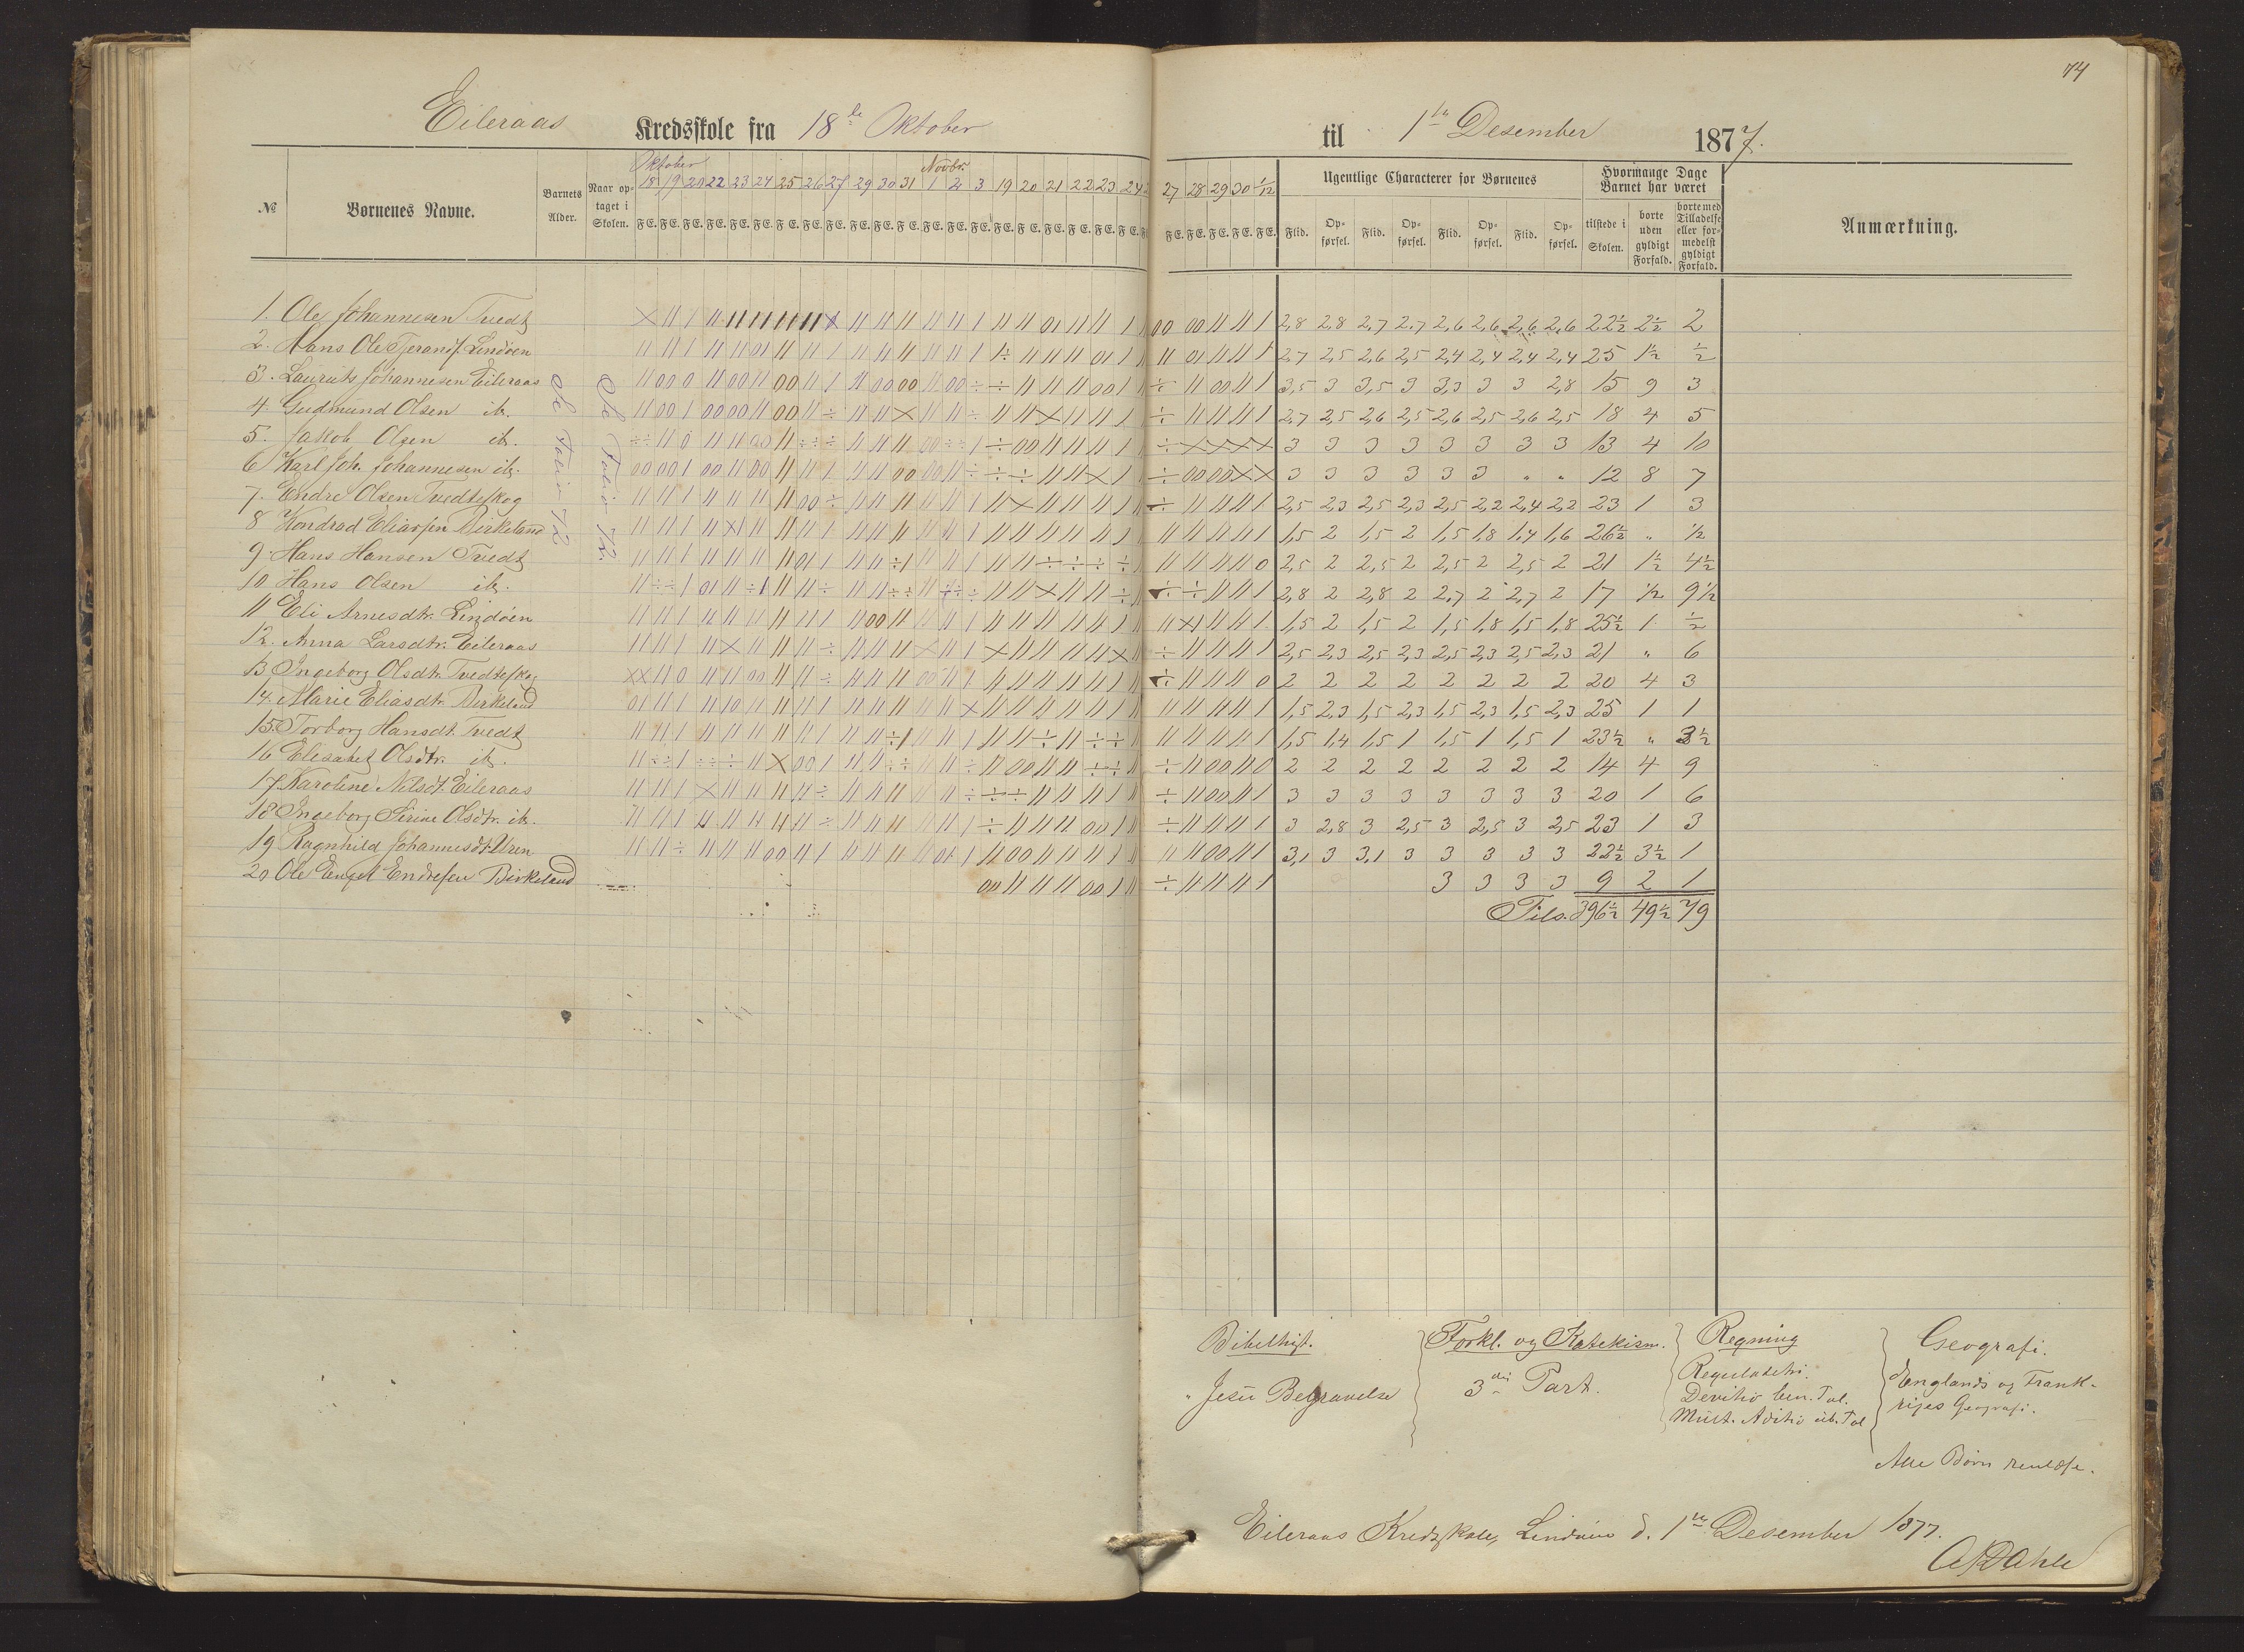 74
Eileraas Kredsskole fra 18de Oktober til 1ste Desember 1877.
№ Børnenes Navne. Barnets Alder. Naar optaget i Skolen. Ugentlige Characterer for Børnenes Hvormange Dage Barnet har været Anmærkning.
Oktober Novbr.
18 19 20 22 23 24 25 26 27 29 30 31 1 2 3 19 20 21 22 23 24 27 28 29 30 1/12
F E. F E. F E. F E. F E. F E. F E. F E. F E. F E. F E. F E. F E. F E. F E. F E. F E. F E. F E. F E. F E. F E. F E. F E. F E. F E.
Flid. Opførsel. Flid. Opførsel. Flid. Opførsel. Flid. Opførsel. tilstede i Skolen. borte uden gyldigt Forfald. borte med Tilladelse eller formedelst gyldigt Forfald.
Se Folio 72
Se Folio 72
1. Ole Johannesen Tvedt 2,8 2,8 2,7 2,7 2,6 2,6 2,6 2,6 22½ 2½ 2
2. Hans Ole Tjerands. Lindøen 2,7 2,5 2,6 2,5 2,4 2,4 2,4 2,4 25 1½ ½
3. Laurits Johannesen Eileraas 3,5 3 3,5 3 3,3 3 3 2,8 15 9 3
4. Gudmund Olsen ib. 2,7 2,5 2,6 2,5 2,6 2,5 2,6 2,5 18 4 5
5. Jakob Olsen ib. 3 3 3 3 3 3 3 3 13 4 10
6 Karl Joh. Johannesen ib. 3 3 3 3 3 3 " " 12 8 7
7. Endre Olsen Tvedteskog 2,5 2,3 2,5 2,3 2,5 2,2 2,4 2,2 23 1 3
8 Kondrad Eliassen Birkeland 1,5 2 1,5 2 1,5 1,8 1,4 1,6 26½ " ½
9. Hans Hansen Tvedt 2,5 2 2,5 2 2,5 2 2,5 2 21 1½ 4½
10 Hans Olsen ib. 2,8 2 2,8 2 2,7 2 2,7 2 17 ½ 9½
11 Eli Arnesdtr. Lindøen 1,5 2 1,5 2 1,5 1,8 1,5 1,8 25½ 1 ½
12. Anna Larsdtr. Eileraas 2,5 2,3 2,5 2,3 2,5 2,3 2,5 2,3 21 " 6
13 Ingeborg Olsdtr. Tvedteskog 2 2 2 2 2 2 2 2 20 4 3
14. Marie Eliasdtr. Birkeland 1,5 2,3 1,5 2,3 1,5 2,3 1,5 2,3 25 1 1
15. Torborg Hansdt. Tvedt 1,5 1,4 1,5 1 1,5 1 1,5 1 23½ " 3½
16 Elisabet Olsdtr. ib. 2 2 2 2 2 2 2 2 14 4 9
17. Karoline Nilsdt. Eileraas 3 3 3 3 3 3 3 3 20 1 6
18 Ingeborg Serine Olsdtr. ib. 3 2,8 3 2,5 3 2,5 3 2,5 23 1 3
19 Ragnhild Johannesdt. Uren 3,1 3 3,1 3 3 3 3 3 22½ 3½ 1
20 Ole Engel Endresen Birkeland 3 3 3 3 9 2 1
Tils. 396½ 49½ 79
Bibelhist.
" Jesu Begravelse
Forkl. og Katekism.
3die Part.
Regning
Reguladetri.
Devitio ben. Tal.
Mult. Aditio ub. Tal
Geografi.
Englands og Frank-
riges Geografi.
Alle Børn renlæse.
Eileraas Kredsskole, Lindøen d. 1ste Desember 1877.